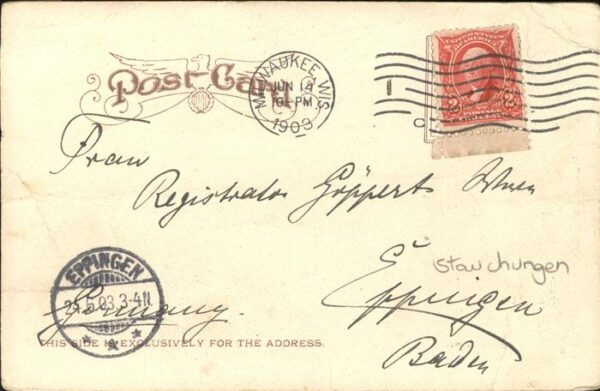 Post Card
MILWAUKEE, WIS.
JUN 14
10 PM
1903
1
UNITED STATES
OF AMERICA
2 2
Frau
Registrator Göppert Wwe
Eppingen
stauchungen
Baden
Germany.
EPPINGEN
24.6.03. 3-4N.
THIS SIDE IS EXCLUSIVELY FOR THE ADDRESS.